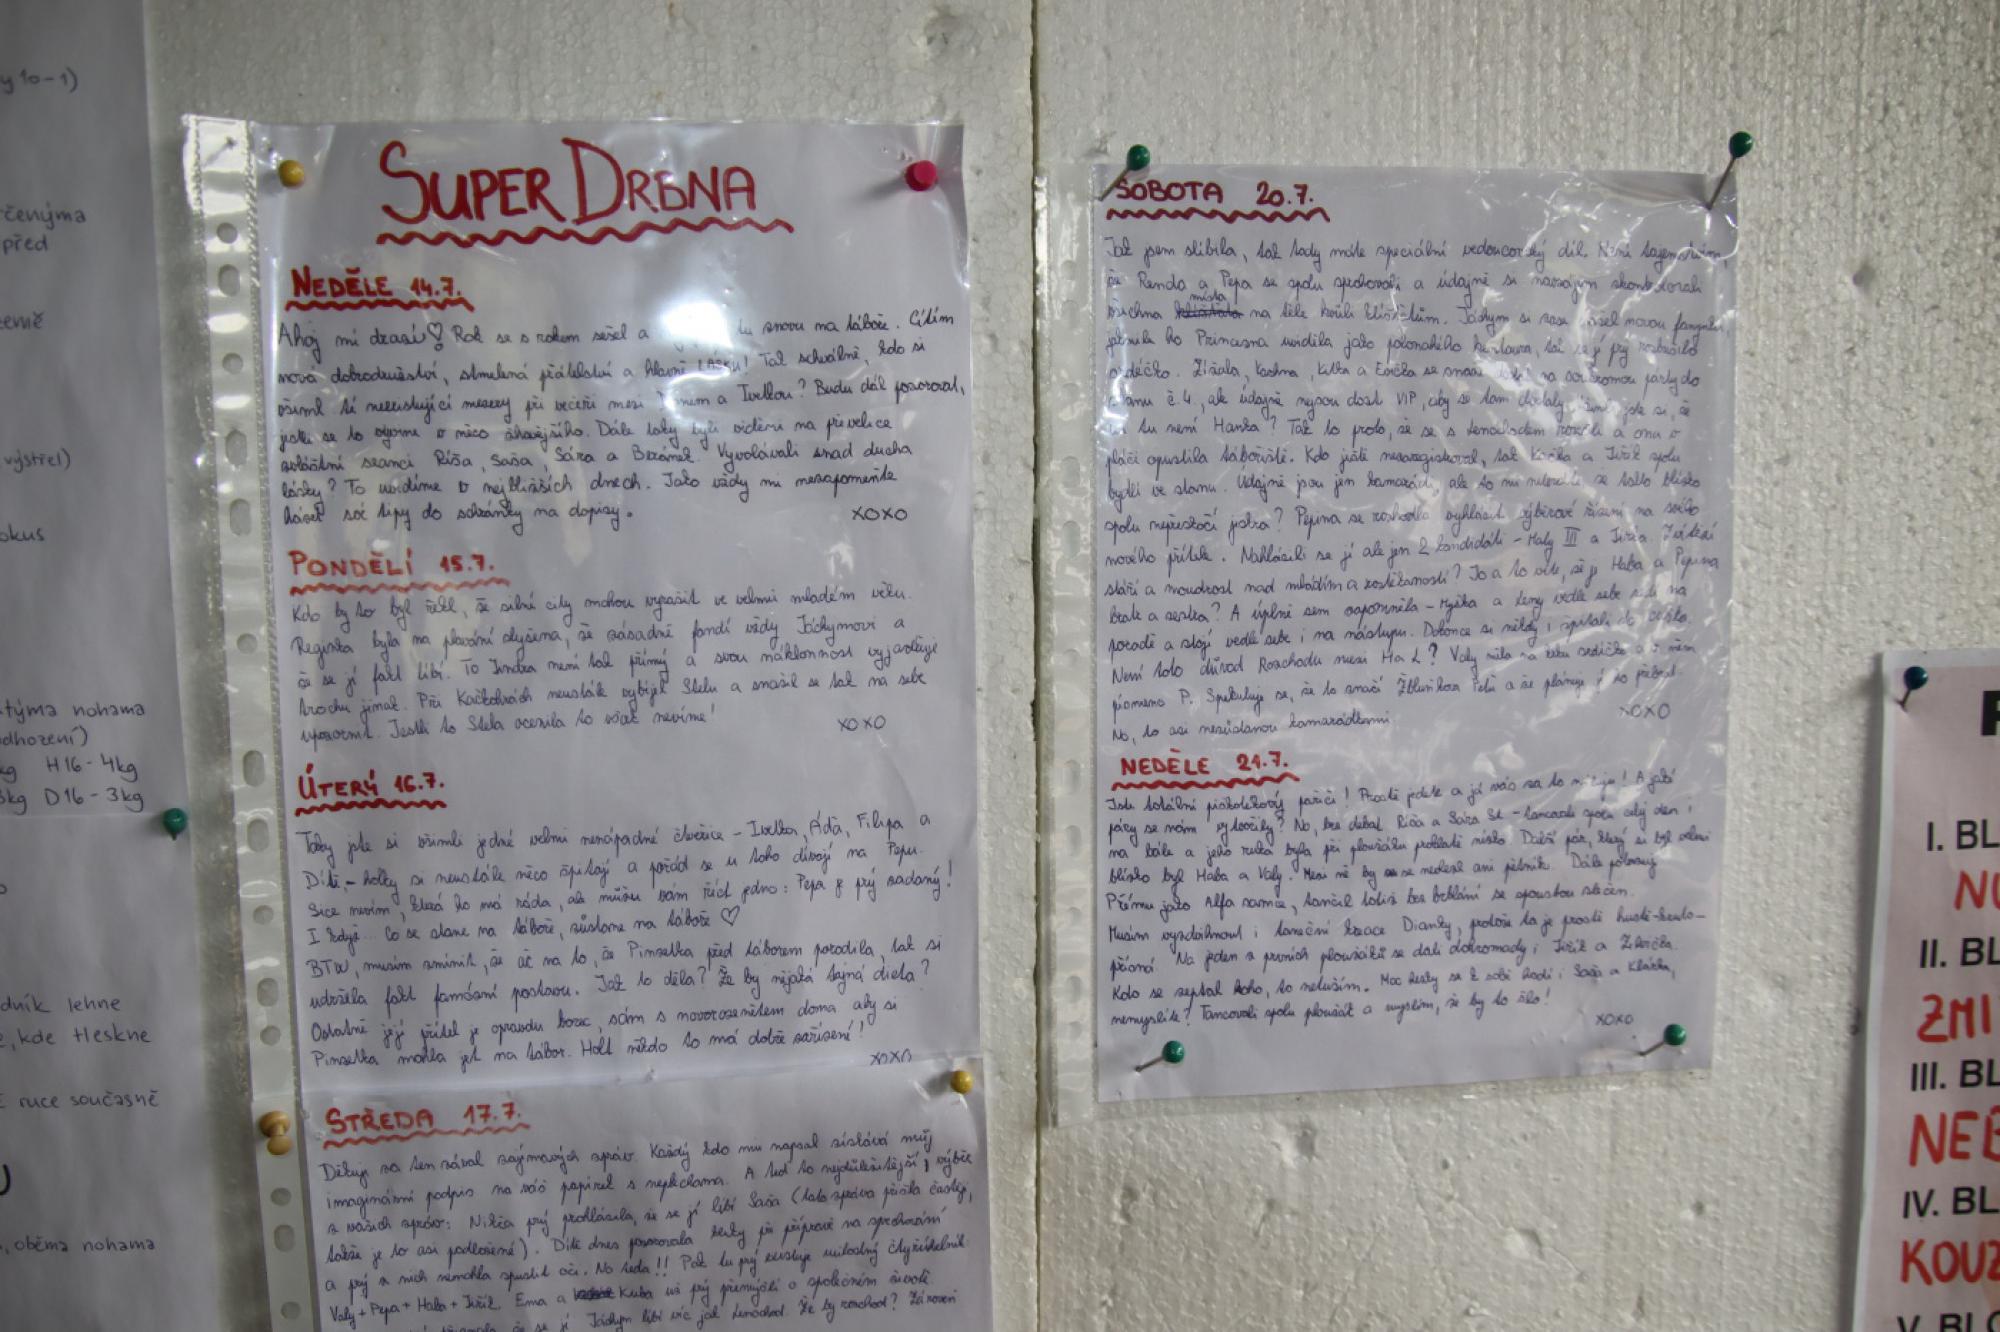 y 10-1)
rčenýma
před
výstřel)
okus
týma nohama
dhození)
kg H16 - 4kg
3kg D16 - 3kg
dník lehne
, kde tleskne
ruce současně
, oběma nohama
SUPER DRBNA
NEDĚLE 14.7.
Ahoj mi drazí ♡ Rok se s rokem sešel a tu znovu na táboře. Cítím
nová dobrodružství, stmelená přátelství a hlavně LÁSKU! Tak schválně, kdo si
všiml té neexistující mezery při večeři mezi a Ivetkou? Budu dál pozorovat,
jestli se to vyvine v něco žhavějšího. Dále taky byli viděni na převelice
zvláštní seanci Ríša, Saša, Sára a Beránek. Vyvolávali snad ducha
lásky? To uvidíme v nejbližších dnech. Jako vždy mi nezapomeňte
házet své tipy do schránky na dopisy. XOXO
PONDĚLÍ 15.7.
Kdo by to byl řekl, že silné city mohou vyrašit ve velmi mladém věku.
Reginka byla na plavání slyšena, že zásadně fandí vždy Jáchymovi a
že se jí fakt líbí. To Jindra není tak přímý a svou náklonnost vyjadřuje
trochu jinak. Při neustále vybíjel Stelu a snažil se tak na sebe
upozornit. Jestli to Stela ocenila to však nevíme! XOXO
ÚTERÝ 16.7.
Taky jste si všimli jedné velmi nenápadné čtveřice - Ivetka, Áďa, Filipa a
Dítě, - holky si neustále něco špitají a pořád se u toho dívají na Pepu.
Sice nevím, která ho má ráda, ale můžu vám říct jedno: Pepa je prý zadaný!
I když... Co se stane na táboře, zůstane na táboře ♡
BTW, musím zmínit, že ač na to, že Pinzetka před táborem porodila, tak si
udržela fakt famózní postavu. Jak to dělá? Že by nějaká tajná dieta?
Ostatně její přítel je opravdu borec, sám s novorozenětem doma aby si
Pinzetka mohla jet na tábor. Holt někdo to má dobře zařízené! XOXO
STŘEDA 17.7.
Děkuji za ten zával zajímavých zpráv. Každý kdo mi napsal získává můj
imaginární podpis na váš papírek s neplechama. A teď to nejdůležitější, výběr
z vašich zpráv: prý prohlásila, že se jí líbí Saša (tato zpráva přišla častěji,
takže je to asi podložené). Dítě dnes pozorovala kluky při přípravě na sprchování
a prý z nich nemohla spustit oči. No teda!! Pak tu prý existuje milostný čtyřúhelník:
Valy + Pepa + Haba + Jiřík. Ema a Kuba už prý přemýšlí o společném životě.
že se jí Jáchym líbí víc jak Lenochod. Že by rozchod? Zároveň
SOBOTA 20.7.
Jak jsem slíbila, tak tady máte speciální vedoucovský díl. Není tajemstvím,
že Renda a Pepa se spolu sprchovali a údajně si navzájem zkontrolovali
všechna místa na těle kvůli klíšťatům. Jáchym si zase našel novou fanynku,
jakmile ho Princezna uviděla jako polonahého kentaura, tak se jí prý rozbušilo
srdéčko. Žížala, Kitka a Evička se snaží na soukromou párty do
stanu č. 4, ale údajně nejsou dost VIP, aby se tam dostaly. jste si, že
tu není Hanka? Tak to proto, že se s Lenochodem rozešli a ona v
pláči opustila tábořiště. Kdo ještě nezaregistroval, tak Kačka a Jiřík spolu
bydlí ve stanu. Údajně jsou jen kamarádi, ale to mi neberte, že takto blízko
spolu nepřeskočí jiskra? Pepina se rozhodla vyhlásit výběrové řízení na svého
nového přítele. Nahlásili se jí ale jen 2 kandidáti - Maty III a Jirka. Zvítězí
stáří a moudrost nad mládím a roztěkaností? Jo a to víte, že je Haba a Pepina
bratr a sestra? A úplně sem zapomněla - Myška a Leny vedle sebe sedí na
poradě a stojí vedle sebe i na nástupu. Dokonce si někdy i špitali do ouška.
Není toto důvod Rozchodu mezi H a L? Valy měla na srdíčko a v něm
písmeno P. Spekuluje se, že to značí Petr a že plánuje
No, to asi nezůstanou kamarádkami XOXO
NEDĚLE 21.7.
Jste totální diskotékový pařiči! Prostě jedete a já vás za to miluju! A jaké
páry se nám vytvořily? No, bez debat Ríša a Sára St - tancovali spolu celý den i
na bále a jeho ruka byla při ploužáku prohlatě nízko. Další pár, který si byl velmi
blízko byl Haba a Valy. Mezi ně by se nevlezl ani pětník. Dále
Přému jako Alfa samce, tančil totiž bez trblání se spoustou slečen.
Musím vyzdvihnout i taneční kreace Dianky, protože ta je prostě husto-krůto-
přísná. Na jeden z prvních ploužáků se dali dohromady i Jiřík a Žibřička.
Kdo se zeptal koho, to netuším. Moc hezky se k sobě hodí i Saša a Klárka,
nemyslíte? Tancovali spolu ploužák a myslím, že by to šlo! XOXO
I. BL
II. BL
ZMI
III. BL
NEB
IV. BL
KOUZ
V. BLO